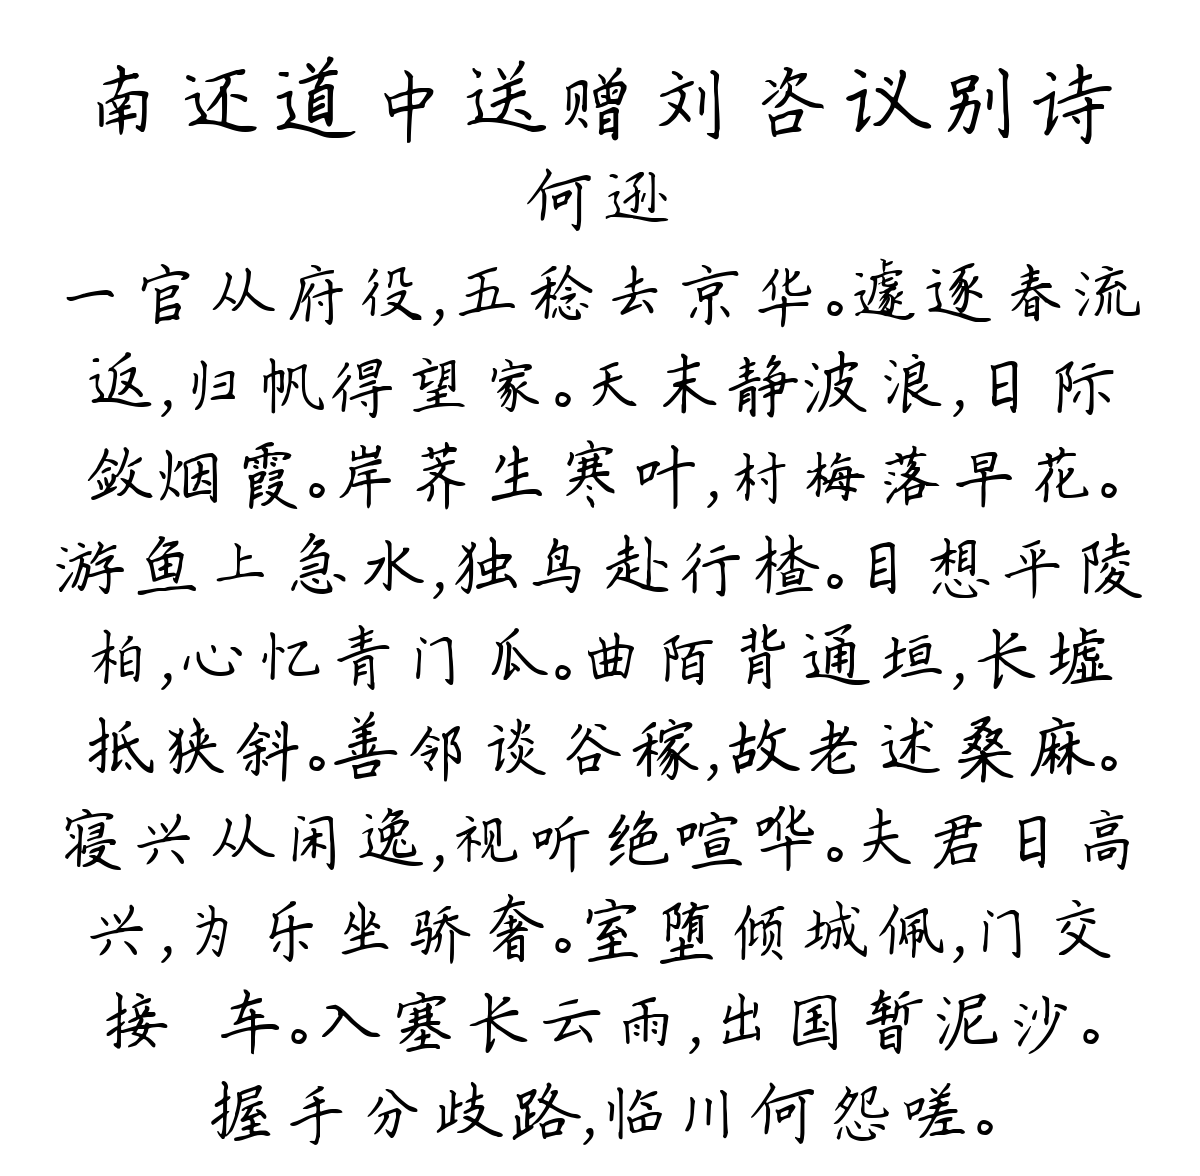 南还道中送赠刘咨议别诗
何逊
一官从府役,五稔去京华。遽逐春流
返,归帆得望家。天末静波浪,日际
敛烟霞。岸荠生寒叶,村梅落早花。
游鱼上急水,独鸟赴行楂。目想平陵
柏,心忆青门瓜。曲陌背通垣,长墟
抵狭斜。善邻谈谷稼,故老述桑麻。
寝兴从闲逸,视听绝喧哗。夫君日高
兴,为乐坐骄奢。室堕倾城佩,门交
接 车。入塞长云雨,出国暂泥沙。
握手分歧路,临川何怨嗟。